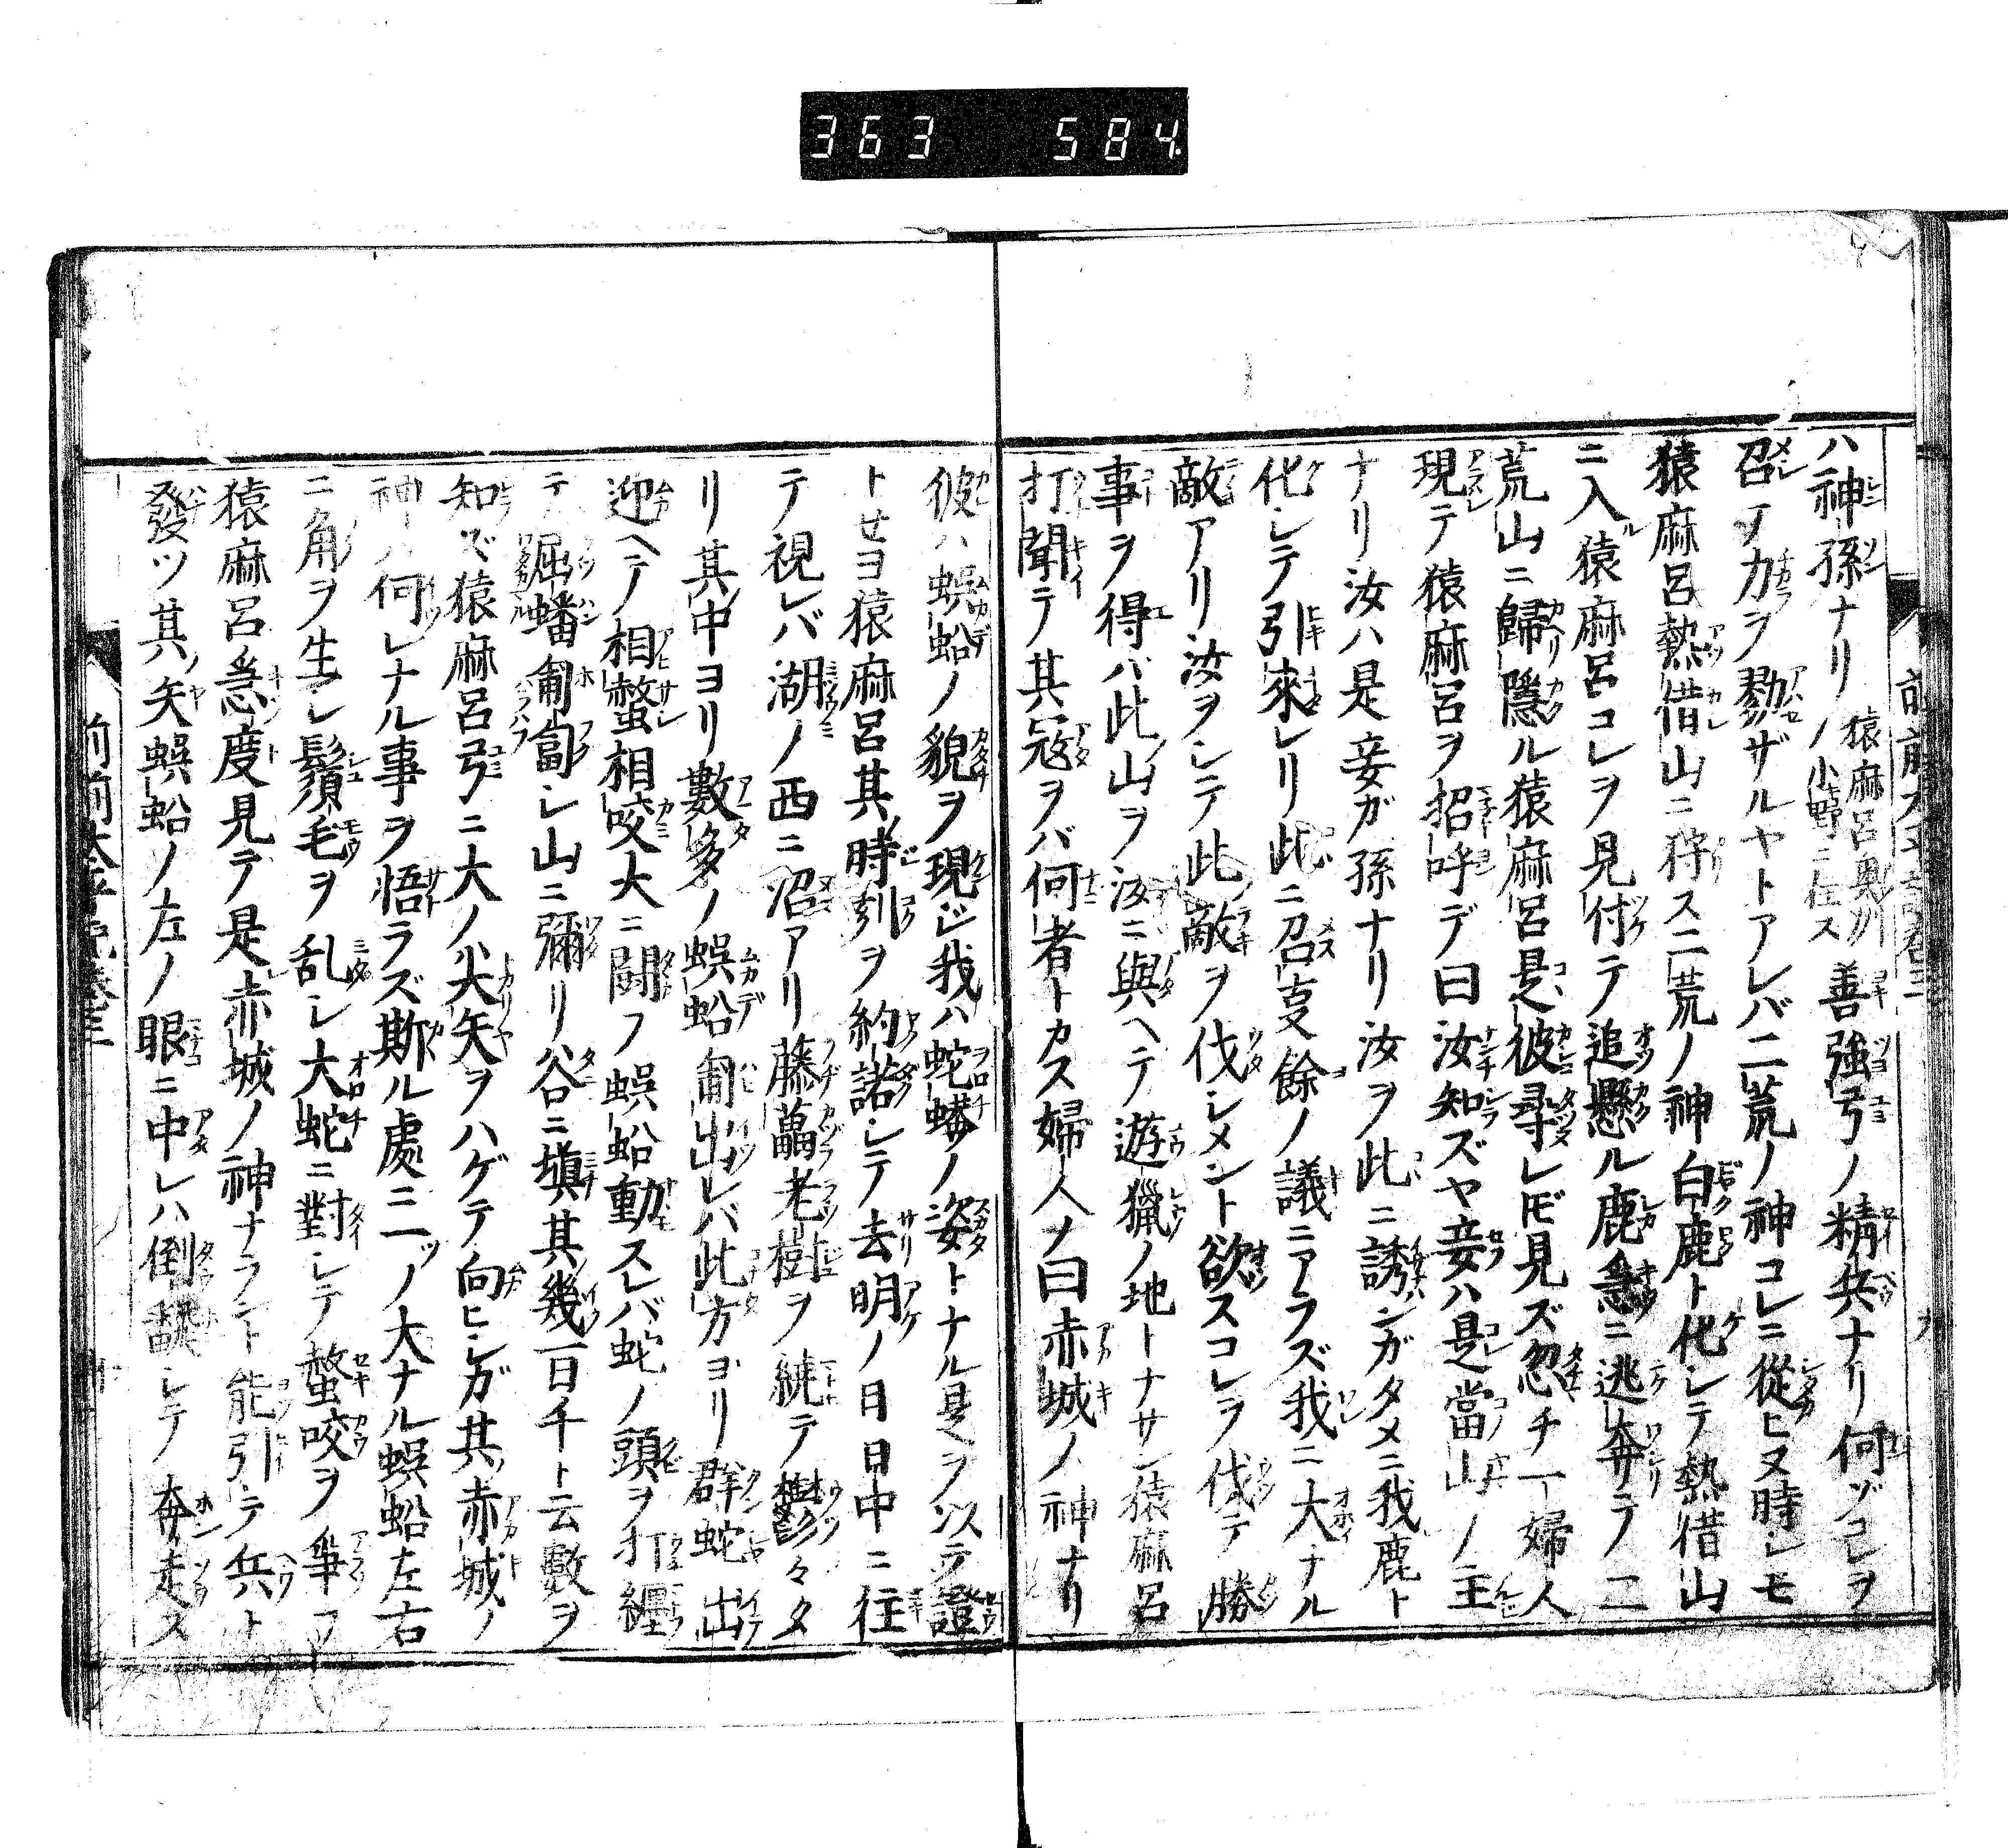 363 584
ハ神孫ナリ猿麻呂奥州ノ小野ニ住ス善強弓ノ精兵ナリ何ゾコレヲ
召テ力ヲ勠ザルヤトアレバ二荒ノ神コレニ從ヒ又時シモ
猿麻呂熱借山ニ狩ス二荒ノ神白鹿ト化シテ熱借山
ニ入猿麻呂コレヲ見付テ追懸ル鹿急ニ逃奔サテノ二
荒山ニ歸隱ル猿麻呂是彼尋レ𪜈見ズ忽チ一婦人
現テ猿麻呂ヲ招呼デ曰汝知ズヤ妾ハ是當山ノ主
ナリ汝ハ是妾ガ孫ナリ汝ヲ此ニ誘ンガタメニ我鹿ト
化シテ引來レリ此ニ召㕝餘ノ議ニアラズ我ニ大ナル
敵アリ汝ヲシテ此敵ヲ伐シメント欲スコレヲ伐テ勝
事ヲ得バ此山ヲ汝ニ與ヘテ遊獵ノ地トナサン猿麻呂
打聞テ其冦ヲバ何者トカス婦人ノ曰赤城ノ神ナリ
彼ハ蜈蚣ノ貌ヲ現ジ我ハ蛇蟒ノ姿トナル是ヲ以テ證
トセヨ猿麻呂其時刻ヲ約諾シテ去明ノ日日中ニ往
テ視レバ湖ノ西ニ沼アリ藤蘿老樹ヲ繞テ欝々タ
リ其中ヨリ數多ノ蜈蚣匍出レバ此方ヨリ群蛇出
迎ヘテ相螫相咬大ニ闘フ蜈蚣動スレバ蛇ノ頭ヲ打纒
テ屈蟠匍匐シ山ニ彌リ谷ニ塡其幾百千ト云數ヲ
知ズ猿麻呂弓ニ大ノ尖矢ヲハゲテ向ヒシガ其赤城ノ
神ハ何レナル事ヲ悟ラズ斯ル處ニ一ツノ大ナル蜈蚣左右
ニ角ヲ生シ鬚毛ヲ乱シ大蛇ニ對シテ螫咬ヲ爭フ
猿麻呂急度見テ是赤城ノ神ナラント能引テ兵ト
發ツ其矢蜈蚣ノ左ノ眼ニ中レハ倒飜シテ奔走ス